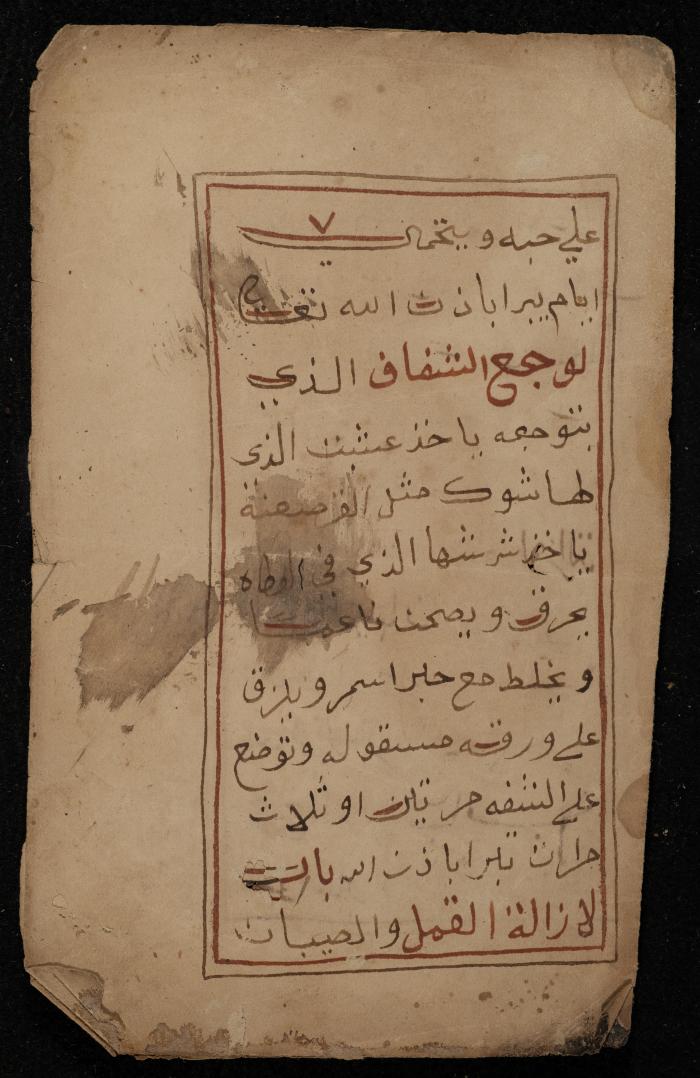 علي حبه ويتخمل ٧
ايام يبرا باذن الله تعالى
لوجع الشفاف الذي
بتوجعه ياخذ عشبت الذي
لها شوك مثل القرصعنة
ياخذ شرشها الذي في الوطاه
يحرق و يصحن ناعمـا
و يخلط مع حبر اسمر و يلزق
علي ورقه مسقوله وتوضع
علي الشفه مرتين او ثلاث
مرات تبرا باذن الله باب
لازالة القمل والصيبان